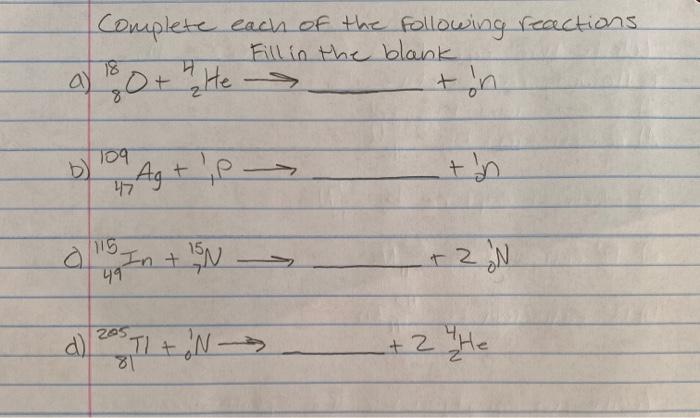 Complete each of the following reactions
Fill in the blank
a) ¹⁸₈O + ⁴₂He → ______ + ¹₀n
b) ¹⁰⁹₄₇Ag + ¹₁P → ______ + ¹₀n
c) ¹¹⁵₄₉In + ¹⁵₇N → ______ + 2 ¹₀N
d) ²⁰⁵₈₁Tl + ¹₀N → ______ + 2 ⁴₂He